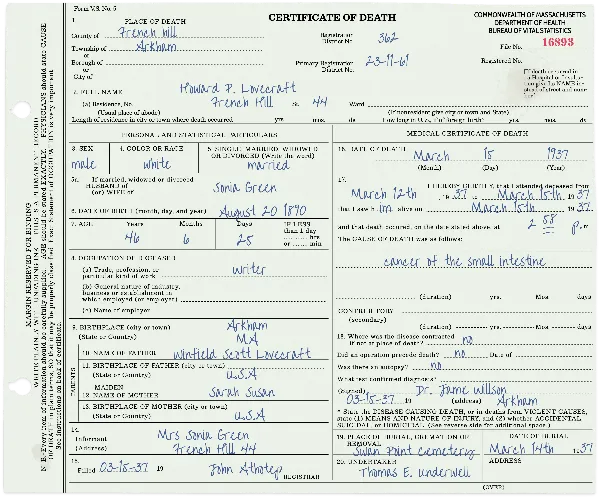 Form V.S. No. 5
CERTIFICATE OF DEATH
COMMONWEALTH OF MASSACHUSETTS
DEPARTMENT OF HEALTH
BUREAU OF VITAL STATISTICS
File No. 16893
Registered No.
1. PLACE OF DEATH
County of French hill
Township of Arkham
or
Borough of
or
City of
Registration District No. 362
Primary Registration District No. 23-11-61
2. FULL NAME Howard P. Lovecraft
(a) Residence, No. French Hill St. 44 Ward
(Usual place of abode)
(If nonresident give city or town and State)
Length of residence in city or town where death occurred yrs. mos. ds. How long in U.S., if of foreign birth? yrs. mos. ds.
PERSONAL AND STATISTICAL PARTICULARS
3. SEX male
4. COLOR OR RACE white
5. SINGLE, MARRIED, WIDOWED OR DIVORCED (Write the word) married
5a. If married, widowed or divorced
HUSBAND of
(or) WIFE of Sonia Green
6. DATE OF BIRTH (month, day, and year) August 20 1890
7. AGE Years Months Days
46 6 25
IF LESS than 1 day
hrs
or min
8. OCCUPATION OF DECEASED
(a) Trade, profession, or particular kind of work writer
(b) General nature of industry, business or establishment in which employed (or employer)
(c) Name of employer
9. BIRTHPLACE (city or town) Arkham
(State or Country) MA
PARENTS
10. NAME OF FATHER Winfield Scott Lovecraft
11. BIRTHPLACE OF FATHER (city or town)
(State or Country) U.S.A
12. MAIDEN NAME OF MOTHER Sarah Susan
13. BIRTHPLACE OF MOTHER (city or town)
(State or Country) U.S.A
14. Informant Mrs Sonia Green
(Address) French Hill 44
15. Filed 03-18-37 19 John Athotep
REGISTRAR
MEDICAL CERTIFICATE OF DEATH
16. DATE OF DEATH March 15 1937
(Month) (Day) (Year)
17. I HEREBY CERTIFY, that I attended deceased from
March 12th, 19 37 to March 15th, 19 37
that I saw him alive on March 15th 19 37
and that death occurred, on the date stated above at 2 58 p.m
The CAUSE OF DEATH was as follows:
cancer of the small intestine
(duration) yrs. Mos. days
CONTRIBUTORY
(secondary)
(duration) yrs. Mos. days
18. Where was the disease contracted
if not at place of death? no
Did an operation precede death? no Date of
Was there an autopsy? no
What test confirmed diagnosis?
(Signed) Dr. Jame Willson
03-15-37 19 (address) Arkham
* State the DISEASE CAUSING DEATH, or in deaths from VIOLENT CAUSES, state (1) MEANS AND NATURE OF INJURY, and (2) whether ACCIDENTAL, SUICIDAL, or HOMICIDAL. (See reverse side for additional space.)
19. PLACE OF BURIAL, CREMATION OR REMOVAL Swan Point Cemetery
DATE OF BURIAL March 14th 37
20. UNDERTAKER Thomas E. underwell
ADDRESS
(OVER)
MARGIN RESERVED FOR BINDING